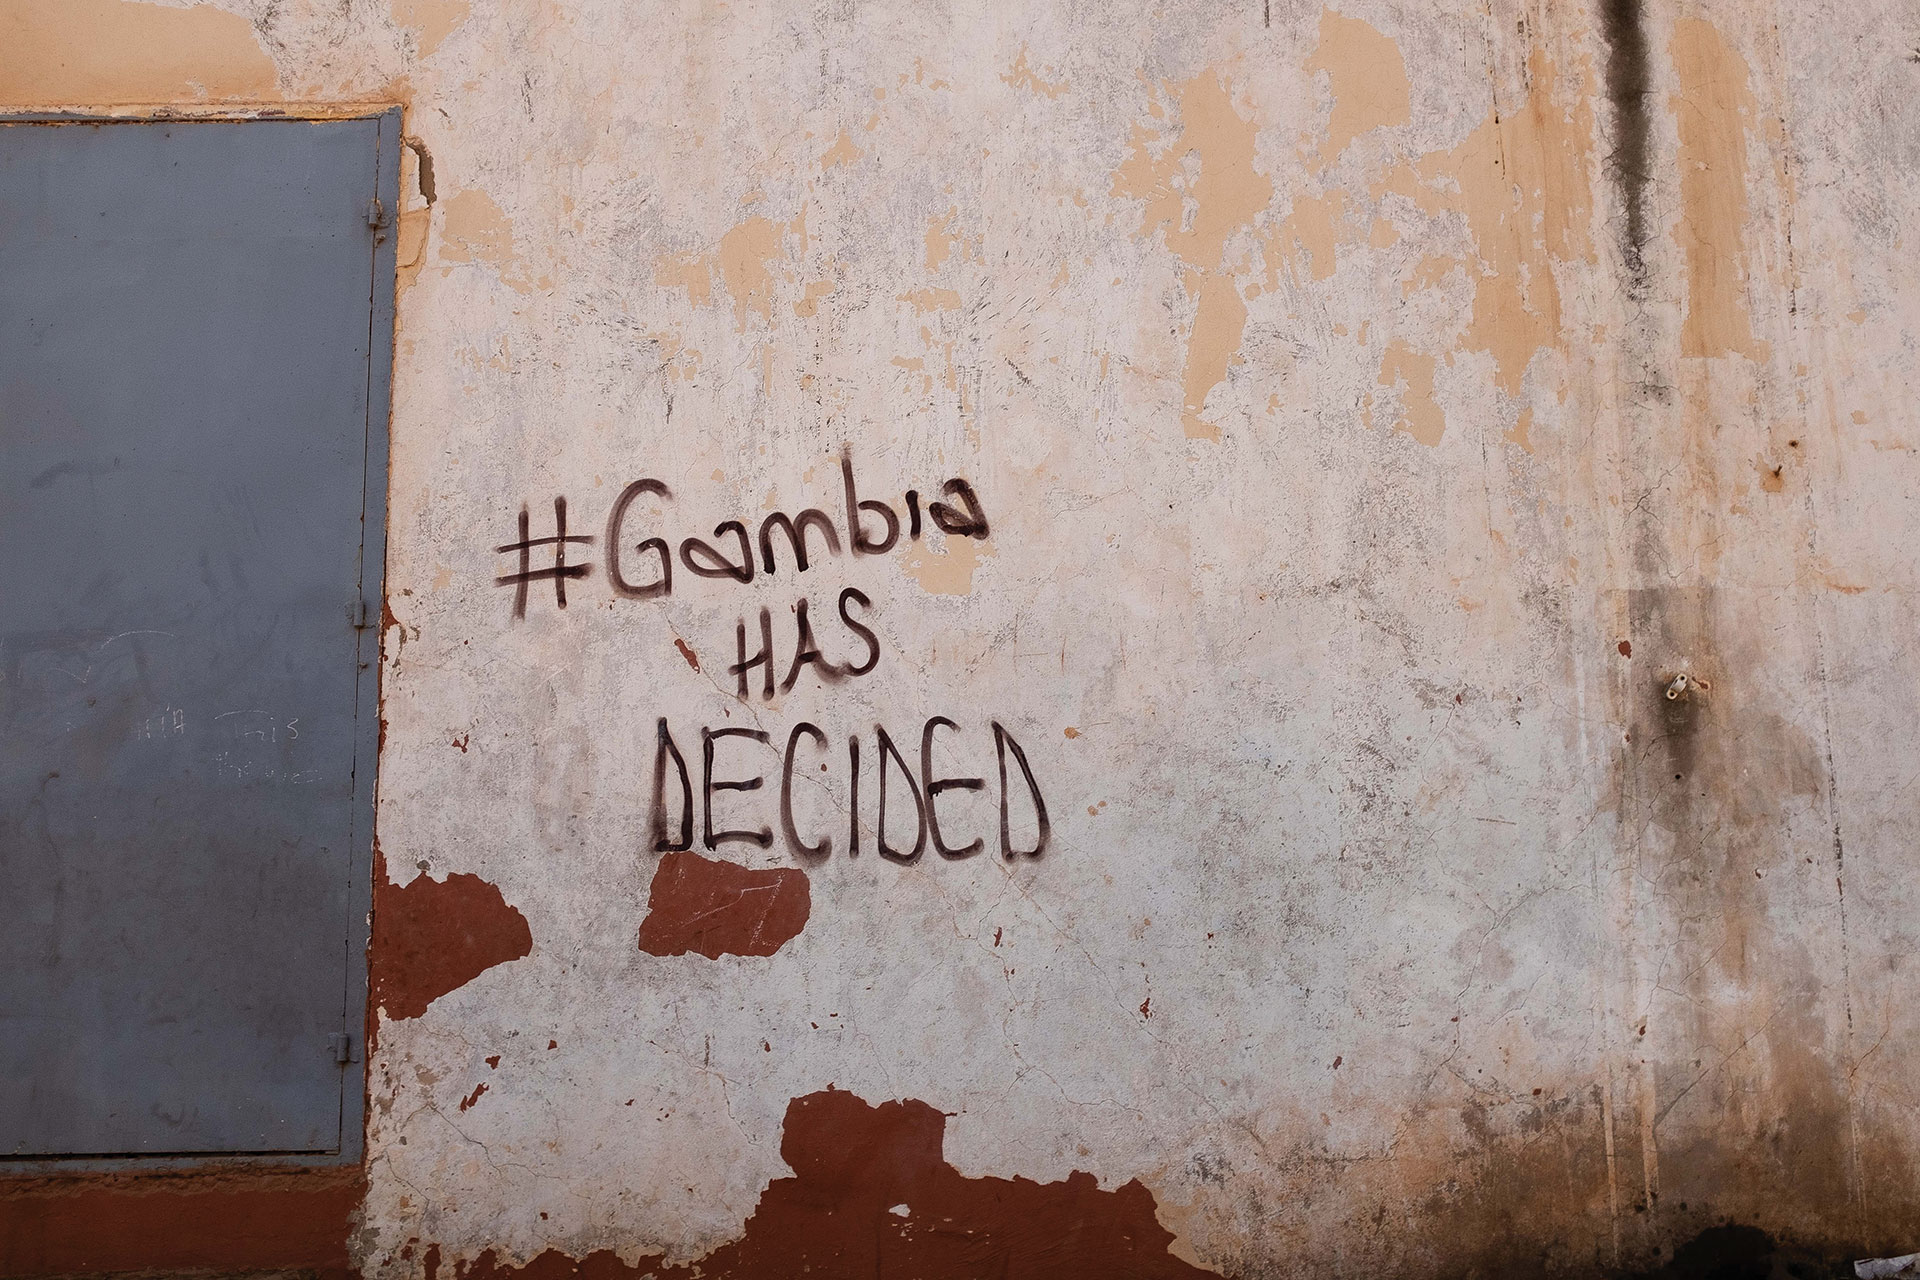 #Gambia
HAS
DECIDED